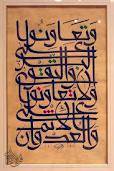 وتعاونوا
على البر
والتقوى
ولا تعاونوا
على الاثم
والعدوان